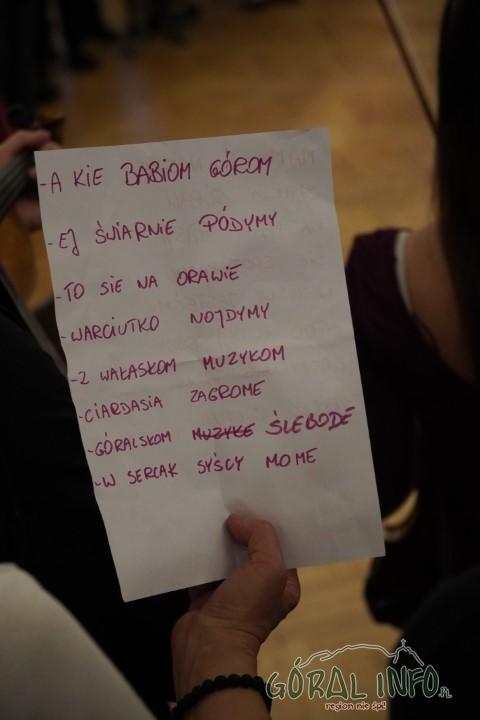 -A KIE BABIOM GÓROM
-EJ ŚWARNIE PÓDYMY
-TO SIE NA ORAWIE
-WARCIUTKO NOJDYMY
-Z WAŁASKOM MUZYKOM
-CIARDASIA ZAGROME
-GÓRALSKOM MUZYKE ŚLEBODE
-W SERCAK SYŚCY MOME
GÓRAL INFO.PL
region nie śpi!